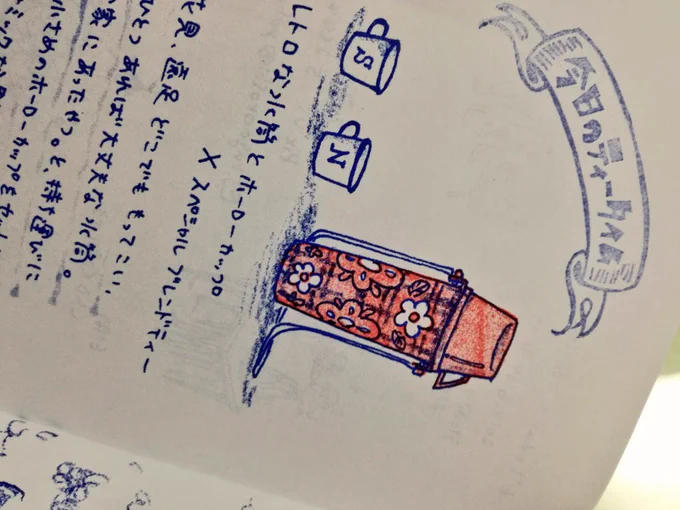 今日のティータイム
S
N
レトロな水筒とホーローカップ
× スペシャルブレンドティー
見、遠足 どこでも もってこい、
ひとつあれば大丈夫な水筒。
家にあったやつ。と、持ち運びに
小さめのホーローカップをセット